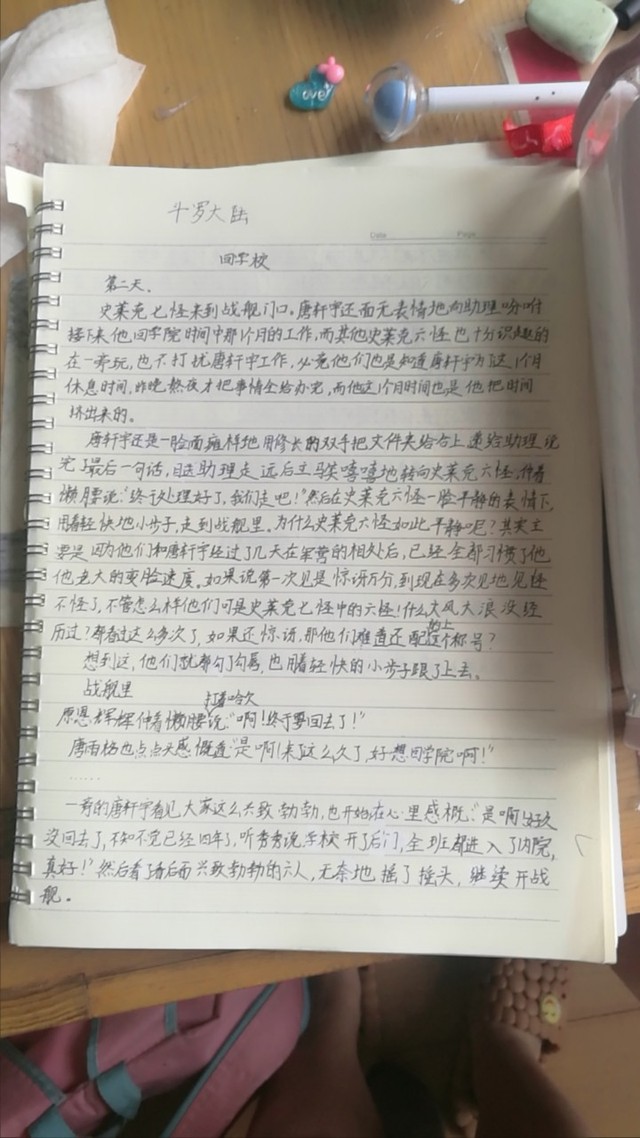 over
斗罗大陆
Date Page
回学校
第二天,
史莱克七怪来到战舰门口。唐轩宇还面无表情地向助理吩咐
接下来他回学院时间中那1个月的工作,而其他史莱克六怪也十分识趣的
在一旁玩,也不打扰唐轩宇工作,必竟他们也是知道唐轩宇为了这1个月
休息时间,昨晚熬夜才把事情全给办完,而他这1个月时间也是他把时间
挤出来的。
唐轩宇还是一脸面瘫样地用修长的双手把文件夹给合上递给助理说
完了最后一句话,目送助理走远后立马笑嘻嘻地转向史莱克六怪,伸着
懒腰说:“终于处理好了,我们走吧!”然后在史莱克六怪一脸平静的表情下,
用着轻快地小步子,走到战舰里。为什么史莱克六怪如此平静呢?其实主
要是因为他们和唐轩宇经过了几天在军营的相处后,已经全都习惯了他
他老大的变脸速度。如果说第一次见是惊讶万分,到现在多次见地见怪
不怪了,不管怎么样他们可是史莱克七怪中的六怪!什么大风大浪没经
历过?都看过这么多次了,如果还惊讶,那他们难道还配的上这个称号?
想到这,他们就都勾了勾唇,也用着轻快的小步子跟了上去。
战舰里
原恩辉辉伸着懒腰打着哈欠说:“啊!终于要回去了!”
唐雨格也点点头感慨道:“是啊!来了这么久了,好想回学院啊!”
……
一旁的唐轩宇看见大家这么兴致勃勃,也开始在心里感概:“是啊!好久
没回去了,不知不觉已经四年了,听秀秀说学校开了后门,全班都进入了内院,
真好!”然后看了看后面兴致勃勃的六人,无奈地摇了摇头,继续开战
舰。